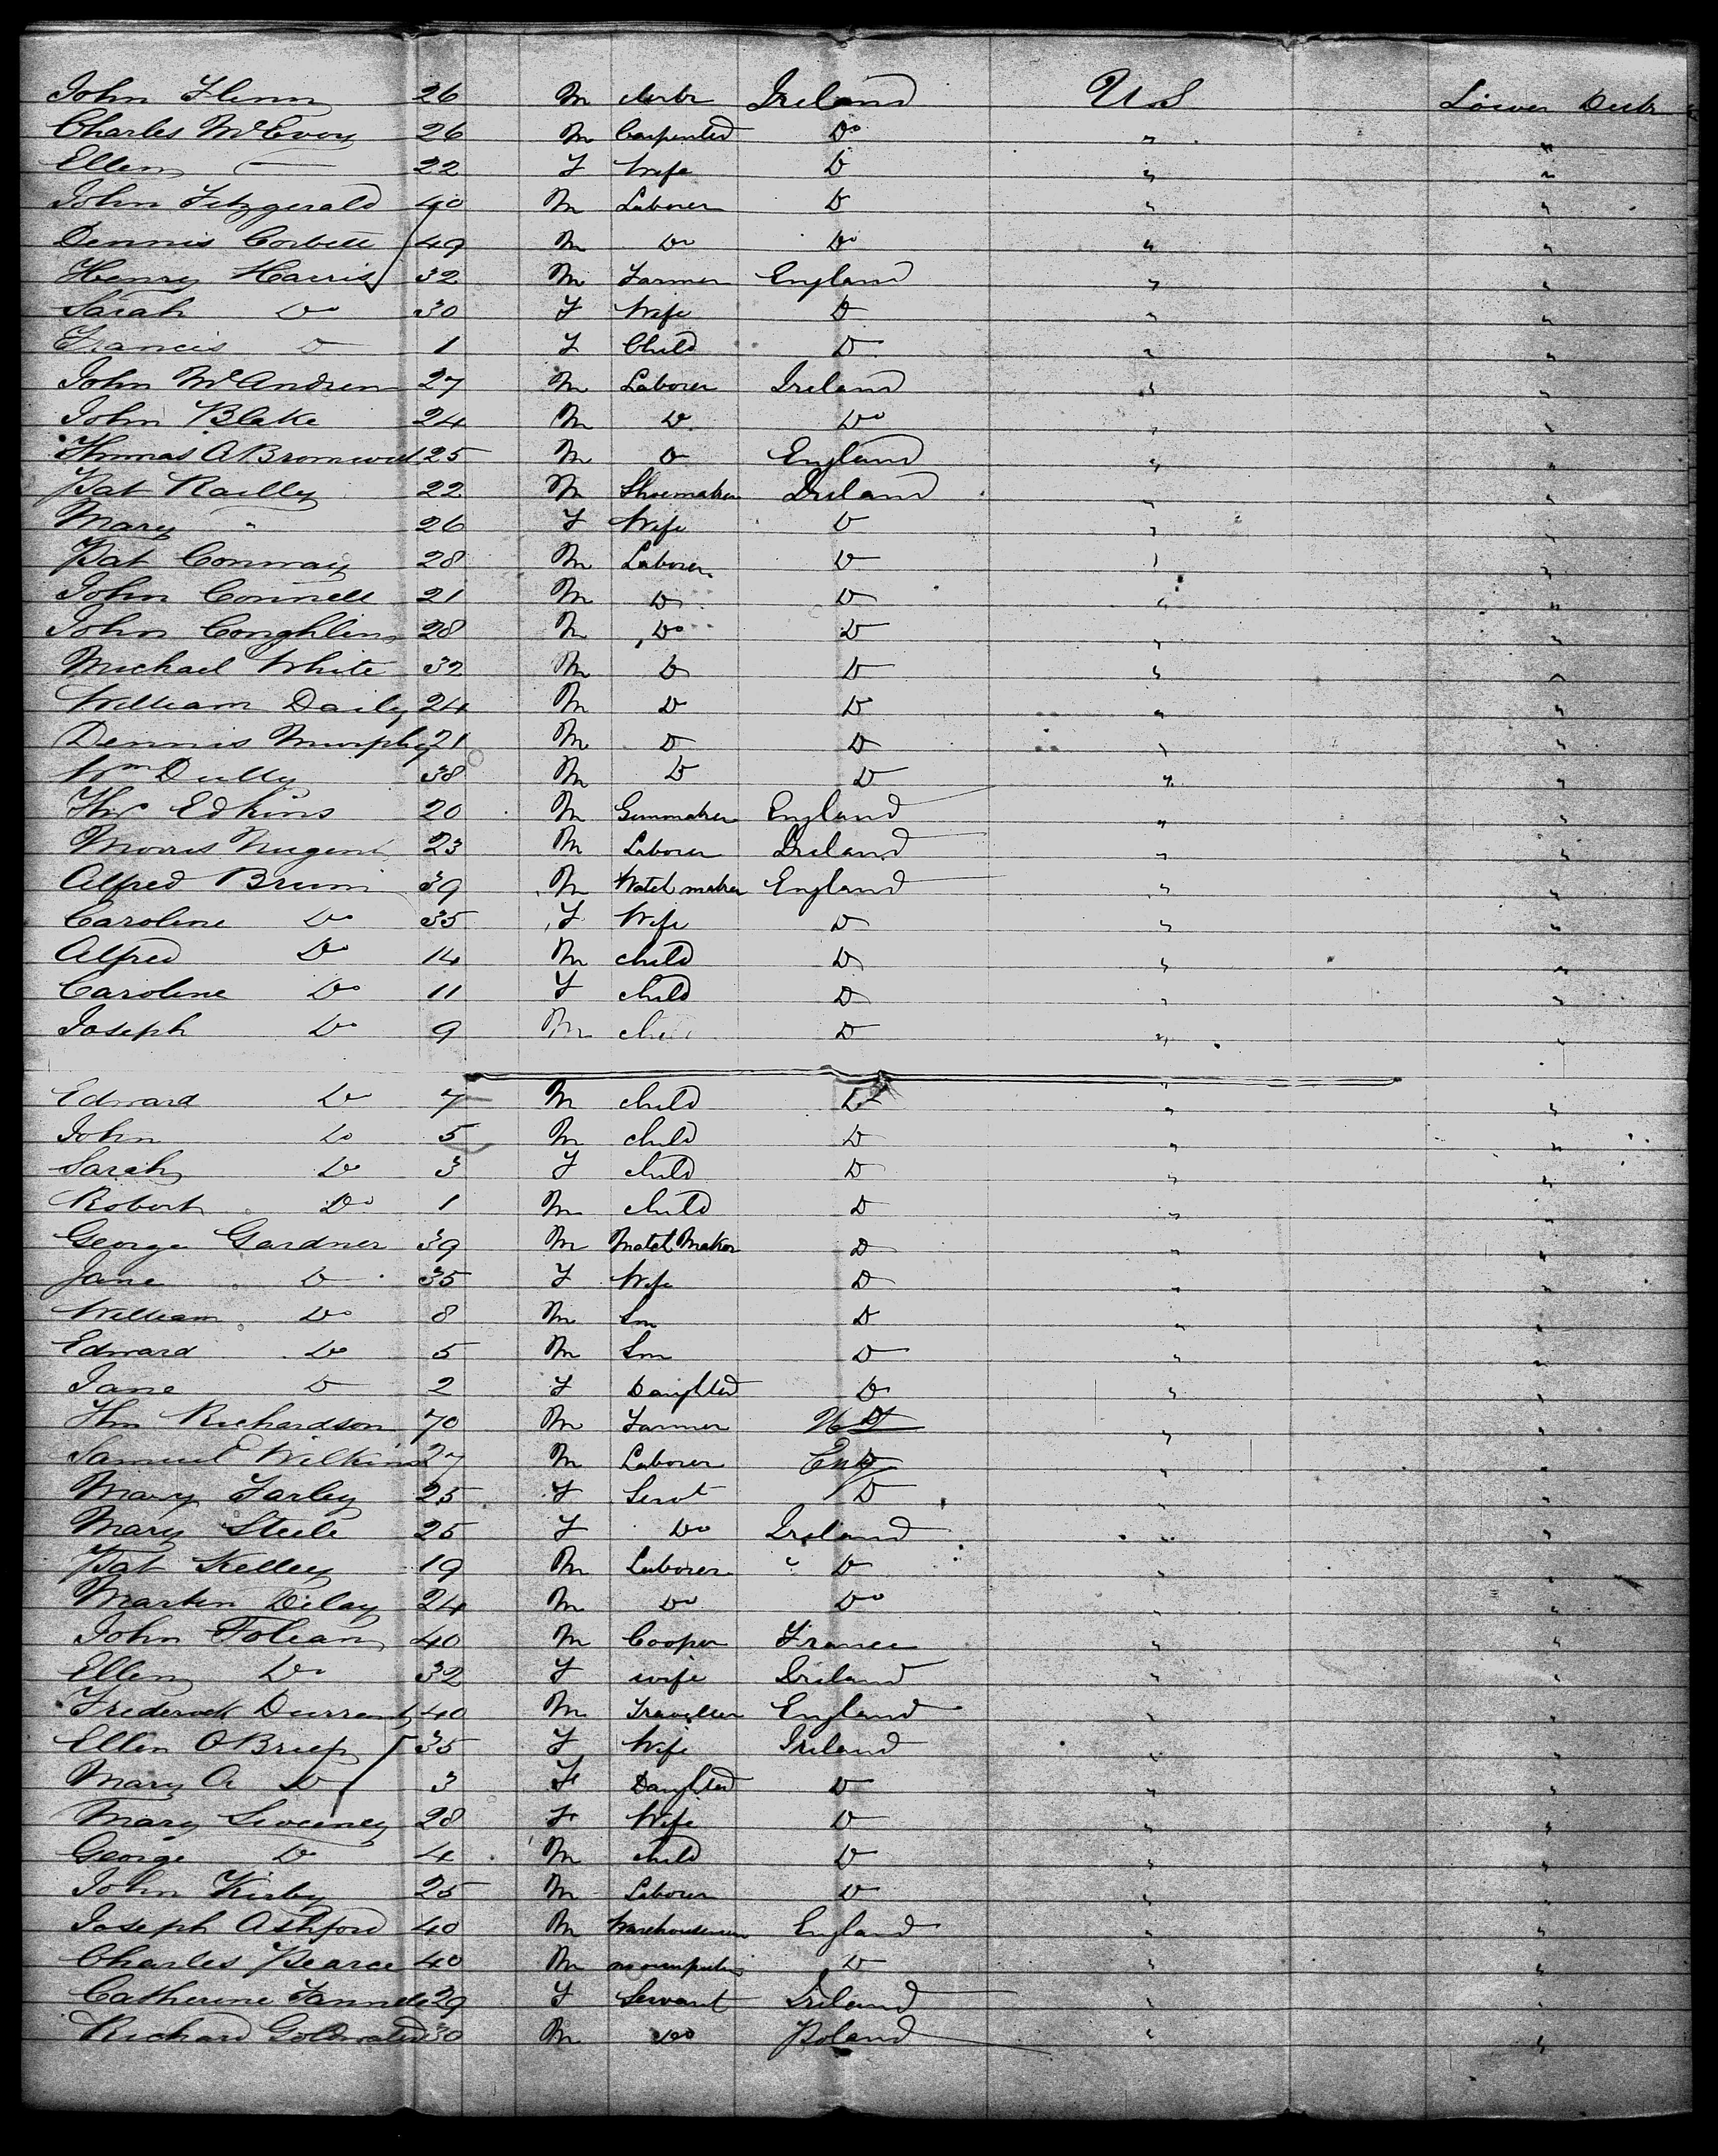 John Flinn 26 M Clerk Ireland U.S Lower Deck
Charles McEvoy 26 M Carpenter Do " "
Ellen — 22 F Wife D " "
John Fitzgerald 40 M Laborer D " "
Dennis Corbett 49 M Do Do " "
Henry Harris 32 M Farmer England " "
Sarah Do 30 F Wife D " "
Francis D 1 F Child D " "
John McAndrew 27 M Laborer Ireland " "
John Blake 24 M D Do " "
Thomas A 25 M D England " "
Pat Railly 22 M Shoemaker Ireland " "
Mary " 26 F Wife D " "
Pat Conway 28 M Laborer D " "
John Connell 21 M D D " "
John Coughlin 28 M Do D " "
Michael White 32 M D D " "
William Daily 24 M D D " "
Dennis Murphy 21 M D D " "
Wm Dully 38 M D D " "
Ths Edkins 20 M Gunmaker England " "
Morris Nugent 23 M Laborer Ireland " "
Alfred Brum 39 M Watchmaker England " "
Caroline Do 35 F Wife D " "
Alfred Do 14 M child D " "
Caroline Do 11 F child D " "
Joseph Do 9 M D " "
Edward Do 7 M child D " "
John Do 5 M child D " "
Sarah Do 3 F child D " "
Robert Do 1 M child D " "
George Gardner 39 M Watch Maker D " "
Jane D 35 F Wife D " "
William Do 8 M Son D " "
Edward Do 5 M Son D " "
Jane D 2 F Daughter D " "
Richardson 70 M Farmer " "
Samuel E Wilkins 27 M Laborer Eng " "
Mary Farley 25 F Servt D " "
Mary Steele 25 F Do Ireland " "
Pat Kelley 19 M Laborer D " "
Martin Delay 24 M Do Do " "
John 40 M Cooper France " "
Ellen Do 32 F wife Ireland " "
Frederick Durrant 40 M Traveller England " "
Ellen OBrien 35 F Wife Ireland " "
Mary A D 3 F Daughter D " "
Mary Sweeney 28 F Wife D " "
George D 4 M child D " "
John Kirby 25 M Laborer D " "
Joseph Ashford 40 M Warehouseman England " "
Charles Pearce 40 M no occupation D " "
Catherine 29 F Servant Ireland " "
Richard 30 M Do Poland " "